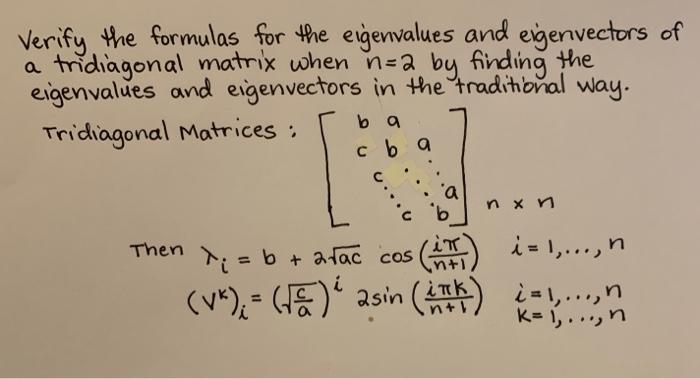 Verify the formulas for the eigenvalues and eigenvectors of
a tridiagonal matrix when n=2 by finding the
eigenvalues and eigenvectors in the traditional way.
Tridiagonal Matrices : [ b a
c b a
c ⋱ ⋱
⋱ ⋱ a
c b ] n x n
Then λᵢ = b + 2√ac cos (iπ/n+1) i = 1,...,n
(Vᵏ)ᵢ = (√c/a)ⁱ 2sin (iπk/n+1) i = 1,...,n
k = 1,...,n